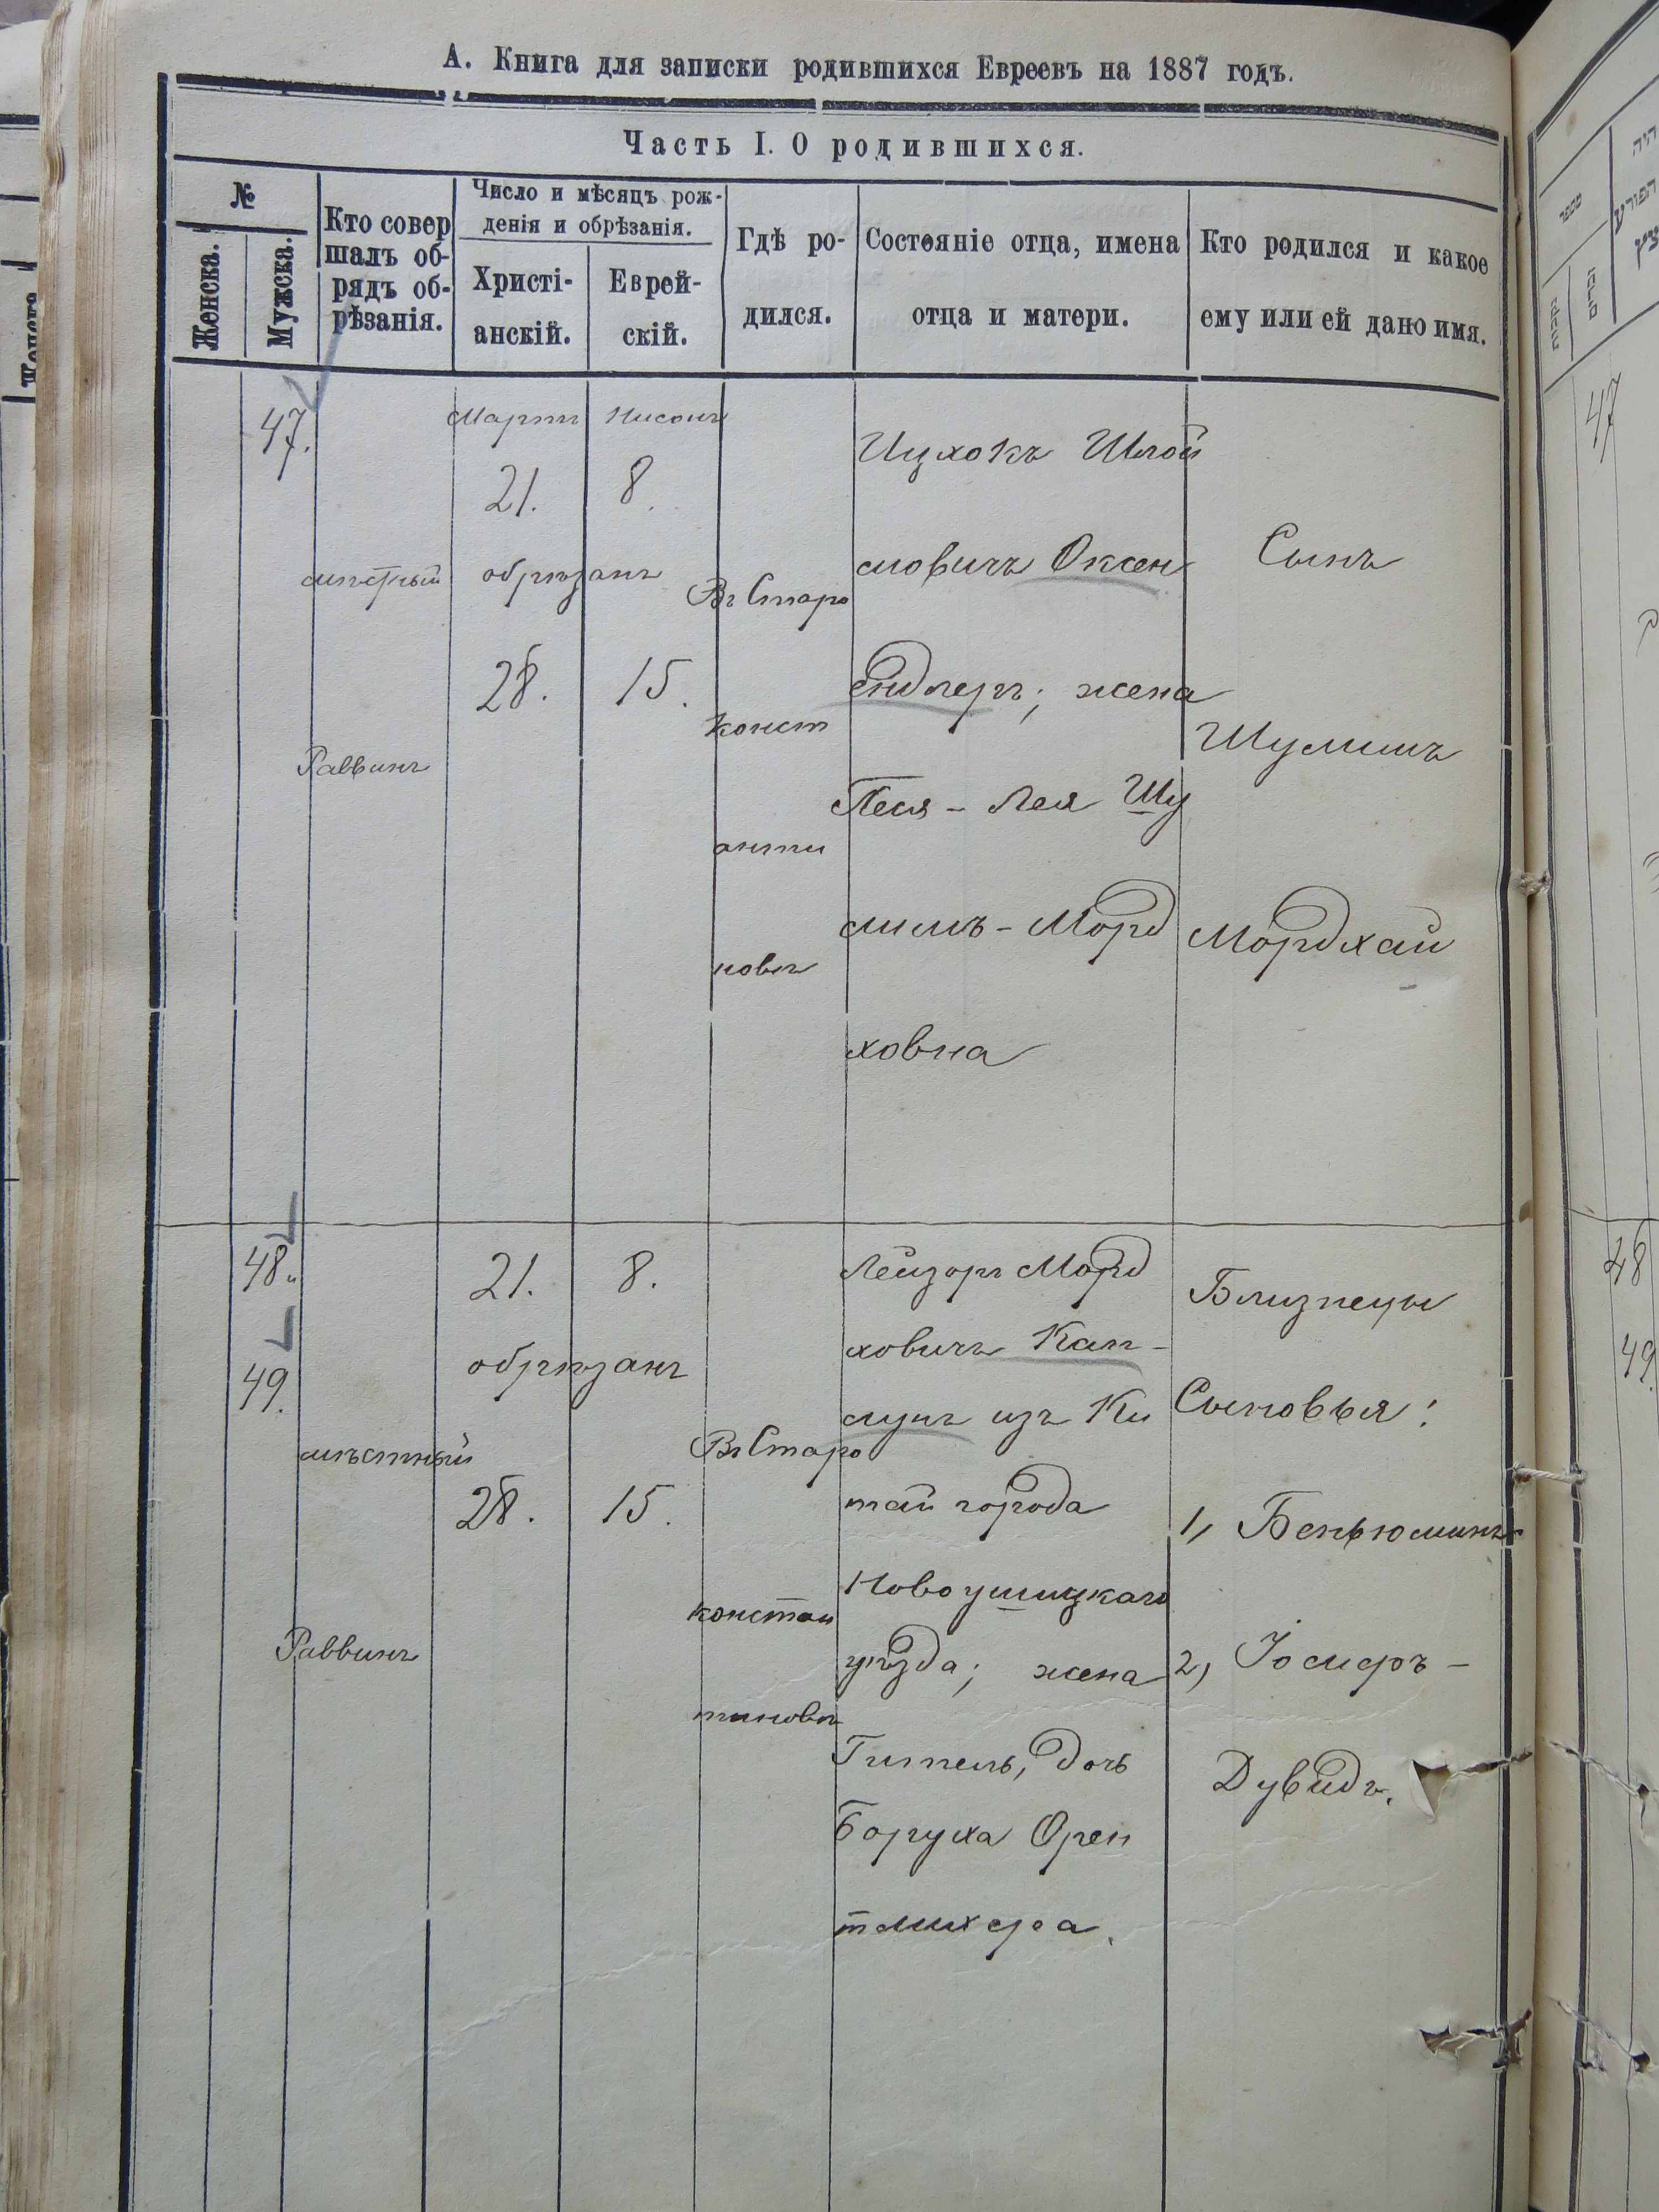 А. Книга для записки родившихся Евреевъ на 1887 годъ.
Часть I. О родившихся.
№
Женска.
Мужска.
Кто совер
шалъ об-
рядъ об-
рѣзанія.
Число и мѣсяцъ рож-
денія и обрѣзанія.
Христі-
анскій.
Еврей-
скій.
Гдѣ ро-
дился.
Состояніе отца, имена
отца и матери.
Кто родился и какое
ему или ей дано имя.
47.
мѣстный
Раввинъ
Мартъ Нисонъ
21. 8.
обрѣзанъ
28. 15.
Въ Старо
конст
анти
новѣ
Ицхокъ Шлой
мовичъ Оксен
ендлеръ; жена
Песя - Лея Шу
лимъ - Морд
ховна
Сынъ
Шулимъ
Мордхай
48.
49.
мѣстный
Раввинъ
21. 8.
обрѣзанъ
28. 15.
Въ Старо
констан
тиновѣ
Лейзоръ Морд
ховичъ Кап-
лунъ изъ Ки
тай города
Новоушицкаго
уѣзда; жена
Гитель, дочь
Боруха Орен
тлихера.
Близнецы
Сыновья:
1, Беньюминъ
2, Іосифъ -
Дувидъ.
47
48
49.